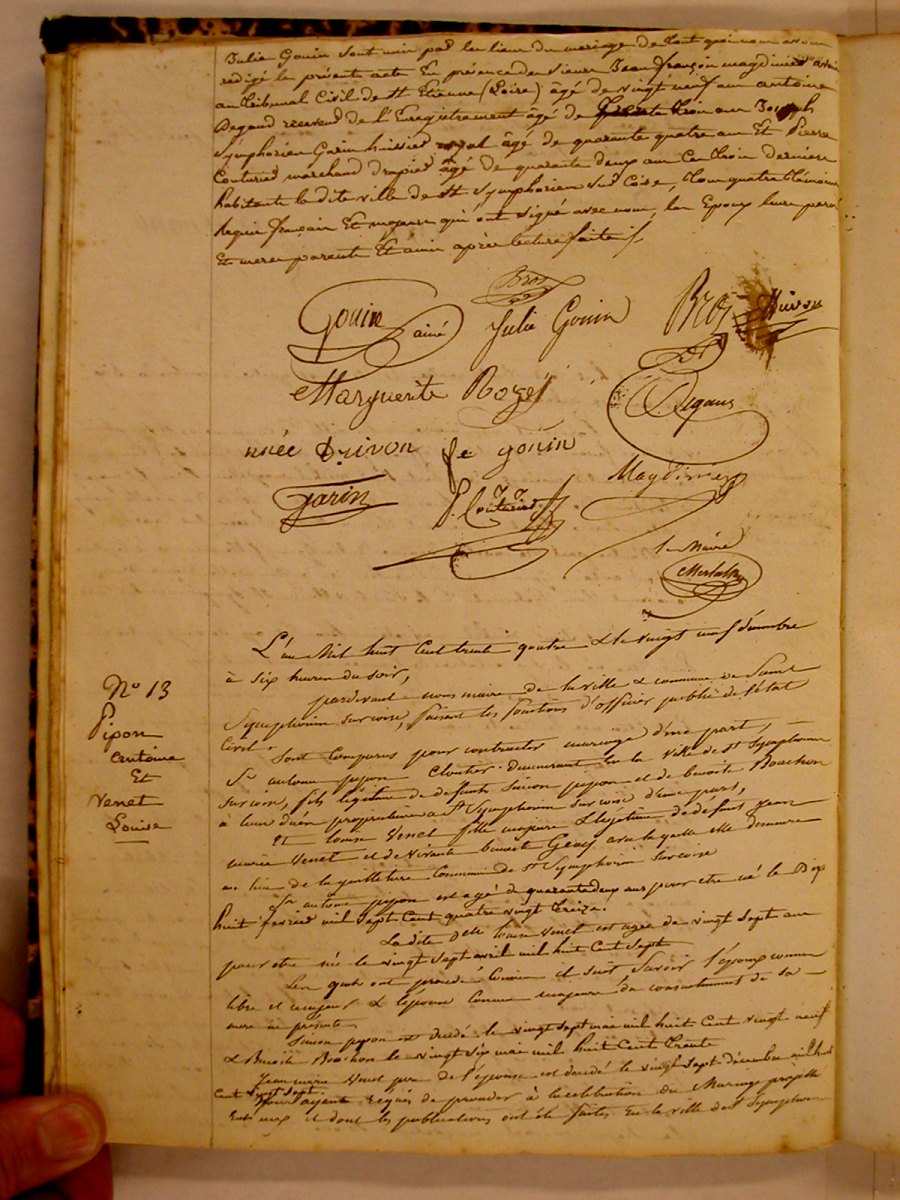 Julie Gouin sont unis par les liens du mariage de tout quoi nous avons
redigé le présent acte En présence de Sieurs Jean françois magdinier avoué
au tribunal Civil de St Etienne (Loire) âgé de vingt neuf ans antoine
Degaud receveur de l'Enregistrement âgé de trente trois ans Joseph
Symphorien Garin huissier royal âgé de quarante quatre ans Et Pierre
Couturier marchand drapier âgé de quarante deux ans Ces trois derniers
habitants la dite ville de St Symphorien sur Coise, tous quatre témoins
requis français Et majeurs qui ont signé avec nous, les Epoux leurs peres
Et meres parents Et amis après lecture faite
Bros
Gouin ainé Julie Gouin Bros Drivon
Marguerite Royet
Degaud
née Drivon fe gouin
Magdinier
Garin P. Couturier
le Maire
N° 13
Pipon
antoine
Et
Venet
Louise
L'an Mil huit Cent trente quatre & le vingt neuf décembre
à six heures du soir,
pardevant nous maire de la ville & commune de Saint
Symphorien sur coise, faisant les fonctions d'officier public de l'état
Civil.
Sont Comparus pour contracter mariage d'une part,
Sr antoine pipon Cloutier demeurant En la Ville de St Symphorien
sur coise, fils légitime de defunts Simon pipon et de benoite Bouchon
à leur décès propriétaires à St Symphorien sur coise d'une part,
Et louise Venet fille majeure & légitime de défunt jean
marie Venet et de vivante benoite avec laquelle elle demeure
au lieu de Commune de St Symphorien sur coise
Sr antoine pipon est agé de quarante deux ans pour etre né le Dix
huit fevrier mil sept Cent quatre vingt treize.
La dite Delle louise Venet est agée de vingt sept ans
pour etre née le vingt sept avril mil huit Cent Sept
Les quels ont procédé Comme il suit, Savoir l'époux comme
libre et majeur & l'épouse Comme majeure du consentement de sa
mere ici présente.
Simon pipon est décédé le vingt sept mai mil huit Cent vingt neuf
& Benoite Bouchon le vingt six mai mil huit Cent trente
Jean marie Venet pere de l'épouse est décédé le vingt sept décembre mil huit
Cent vingt sept.
Nous ayant requis de proceder à la celebration du Mariage projetté
Entr'eux & dont les publications ont été faites En la ville de St Symphorien